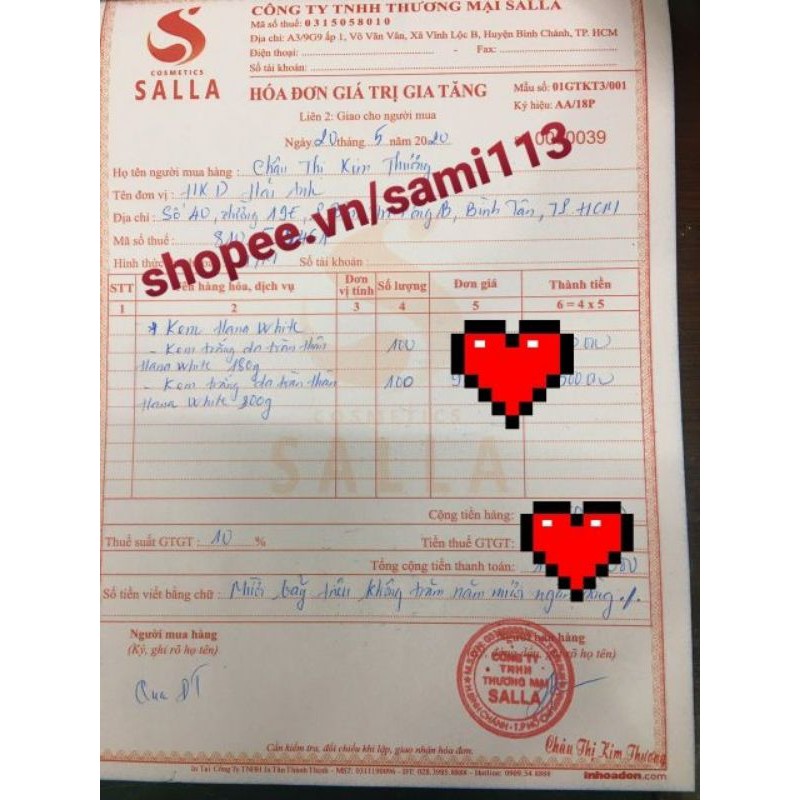 CÔNG TY TNHH THƯƠNG MẠI SALLA
Mã số thuế: 0315058010
Địa chỉ: A3/9G9 ấp 1, Võ Văn Vân, Xã Vĩnh Lộc B, Huyện Bình Chánh, TP. HCM
Điện thoại: - Fax:
Số tài khoản:
COSMETICS
SALLA
HÓA ĐƠN GIÁ TRỊ GIA TĂNG
Mẫu số: 01GTKT3/001
Liên 2: Giao cho người mua
Ký hiệu: AA/18P
Ngày 20 tháng 5 năm 2020
0039
Họ tên người mua hàng: Châu Thị Kim Thưởng
Tên đơn vị: HKD Hải Anh
Địa chỉ: Số 40, đường 19E, B, Bình Tân, TP. HCM
Mã số thuế:
Hình thức Số tài khoản
shopee.vn/sami113
STT Tên hàng hóa, dịch vụ Đơn vị tính Số lượng Đơn giá Thành tiền
1 2 3 4 5 6 = 4 x 5
* Kem Hana White
- Kem trắng da toàn thân 100
Hana White 180g
- Kem trắng da toàn thân 100
Hana White 200g
COSMETICS
SALLA
Cộng tiền hàng:
Thuế suất GTGT: 10 % Tiền thuế GTGT:
Tổng cộng tiền thanh toán:
Số tiền viết bằng chữ: Mười bảy triệu không trăm năm mươi ngàn đồng./.
Người mua hàng
(Ký, ghi rõ họ tên)
Người bán hàng
ghi rõ họ tên)
Qua ĐT
CÔNG TY
TNHH
THƯƠNG MẠI
SALLA
Châu Thị Kim Thương
Cần kiểm tra, đối chiếu khi lập, giao nhận hóa đơn.
inhoadon.com